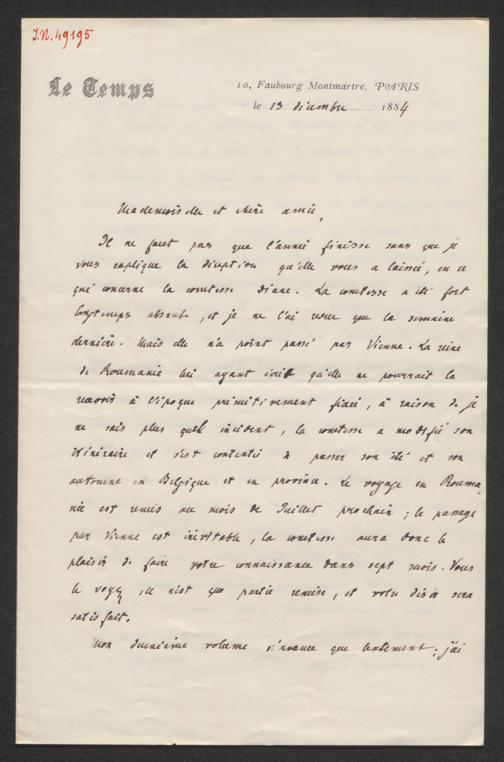 I.N. 49195
Le Temps
10, Faubourg Montmartre, PARIS
le 13 décembre 1884
Mademoiselle et chère amie,
Il ne faut pas que l'année finisse sans que je
vous explique la déception qu'elle vous a laissée, en ce
qui concerne la comtesse Diane. La comtesse a été fort
longtemps absente, et je ne l'ai revue que la semaine
dernière. Mais elle n'a point passé par Vienne. La reine
de Roumanie lui ayant écrit qu'elle ne pourrait la
recevoir à l'époque primitivement fixée, à raison de je
ne sais plus quel incident, la comtesse a modifié son
itinéraire et s'est contentée de passer son été et son
automne en Belgique et en province. Le voyage en Rouma-
nie est remis au mois de Juillet prochain ; le passage
par Vienne est inévitable, la comtesse aura donc le
plaisir de faire votre connaissance dans sept mois. Vous
le voyez, ce n'est que partie remise, et votre désir sera
satisfait.
Mon deuxième volume n'avance que lentement ; j'ai